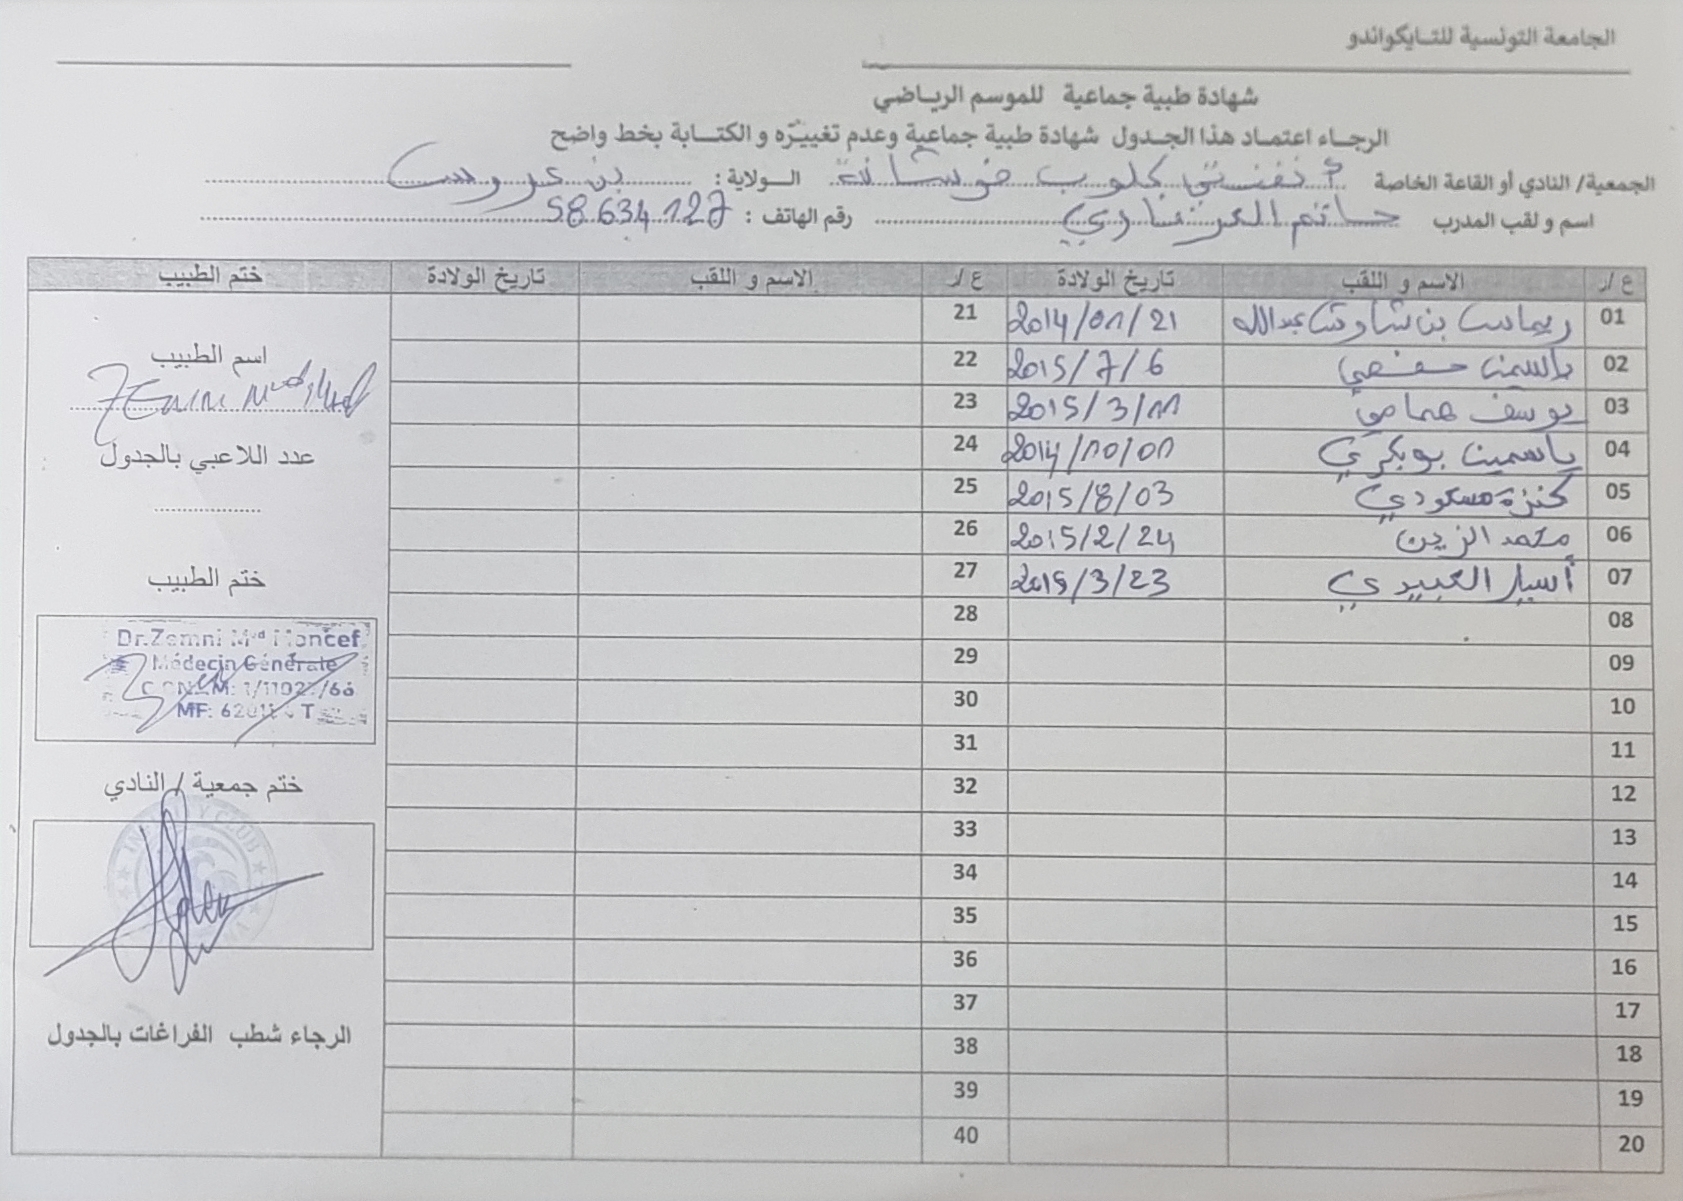 الجامعة التونسية للتايكواندو
شهادة طبية جماعية للموسم الرياضي
الرجاء اعتماد هذا الجدول شهادة طبية جماعية وعدم تغييره و الكتابة بخط واضح
الجمعية/ النادي أو القاعة الخاصة أنفنتي كلوب خوستانة الولاية: بن عروس
اسم و لقب المدرب حاتم رقم الهاتف : 58.634.127
ع/ر الاسم و اللقب تاريخ الولادة ع/ر الاسم و اللقب تاريخ الولادة ختم الطبيب
01 ريماس بن شاوش عبدالله 2014/01/21 21
02 ياسمين حفصي 2015/7/6 22
03 يوسف همامي 2015/3/11 23
04 ياسمين بوبكري 2014/10/01 24
05 كنزة مسعودي 2015/8/03 25
06 محمد الزين 2015/2/24 26
07 أسيل العبيدي 2015/3/23 27
08 28
09 29
10 30
11 31
12 32
13 33
14 34
15 35
16 36
17 37
18 38
19 39
20 40
اسم الطبيب
Zemni
عدد اللاعبي بالجدول
ختم الطبيب
Dr.Zemni Mᵈ Moncef
Médecin Générale
MF:
ختم جمعية / النادي
INFINITY CLUB
الرجاء شطب الفراغات بالجدول